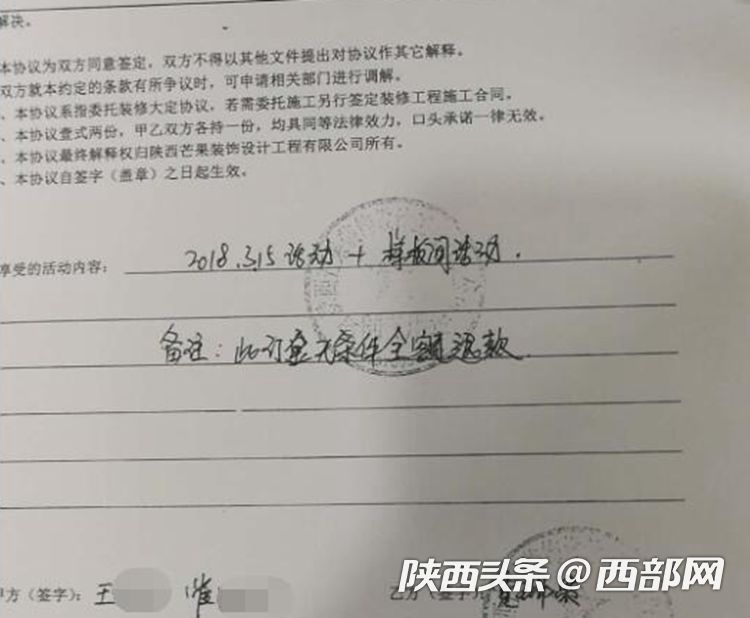 解决。
本协议为双方同意签定，双方不得以其他文件提出对协议作其它解释。
双方就本约定的条款有所争议时，可申请相关部门进行调解。
、本协议系指委托装修大定协议，若需委托施工另行签定装修工程施工合同。
、本协议壹式两份，甲乙双方各持一份，均具同等法律效力，口头承诺一律无效。
、本协议最终解释权归陕西芒果装饰设计工程有限公司所有。
、本协议自签字（盖章）之日起生效。
享受的活动内容：2018.3.15活动 + 样板间活动.
备注：此订金无条件全额退款
甲方（签字）：王 崔 乙方（签字）
陕西头条@西部网